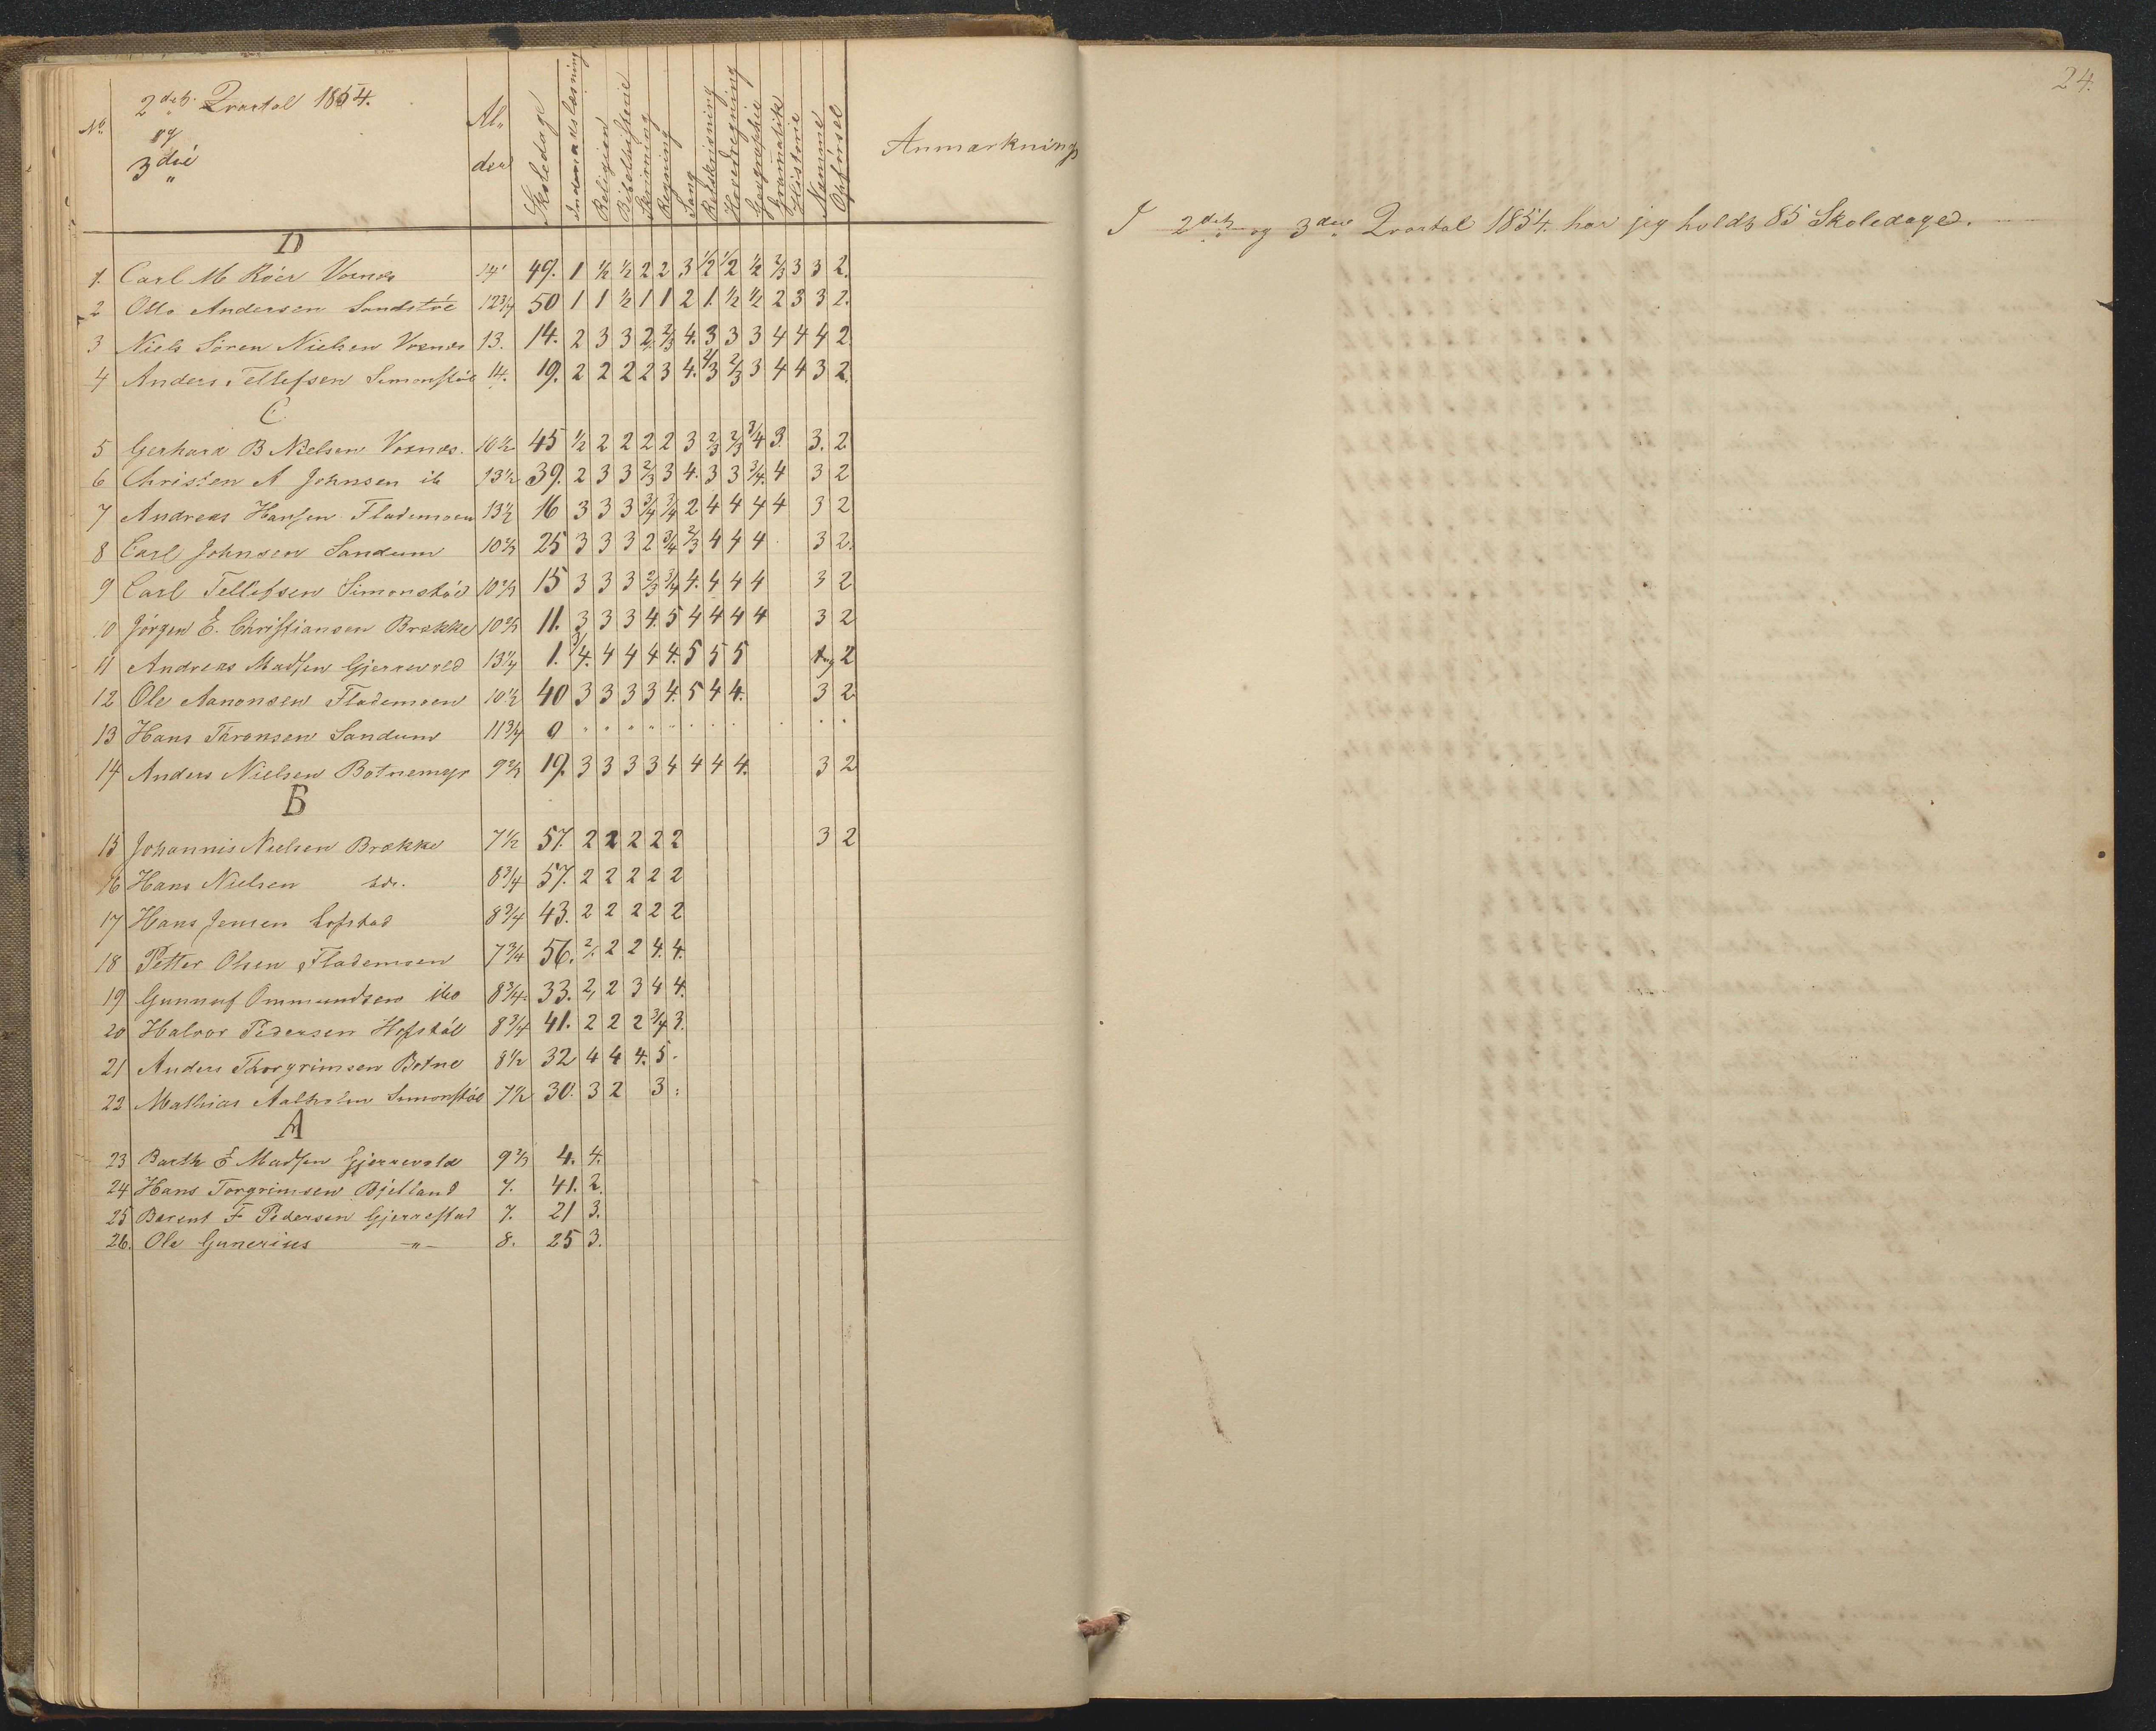 No. 2det Qvartal 1854. Al„ Skoledage Indenadslæsning Religion Bibelhistorie Skrivning Regning Sang Retskrivning Hovedregning Geographie Gramatik Historie Næmme Opførsel Anmærkning
og
3die der
D
1. Carl M Röer Vosnes 14 49. 1 ½ ½ 2 2 3 ½ ½ ½ 2/3 3 3 2.
2 Otto Andersen Sandstöe 12¾ 50 1 1 ½ 1 1 2 1. ½ ½ 2 3 3 2.
3 Niels Sören Nielsen Vosnes 13. 14. 2 3 3 2. 2/3 4. 3 3 3 4 4 4 2.
4 Anders Tellefsen Simonstöe 14. 19. 2 2 2 2 3 4. 2/3 2/3 3 4 4 3 2.
C
5 Gerhard B Nielsen Vosnes. 10½ 45 ½ 2 2 2 2 3 2/3 2/3 3/4 3. 3. 2
6 Christen A Johnsen ib 13½ 39. 2 3 3 2/3 3 4. 3 3 3/4. 4 3 2
7 Andreas Hansen Flademoen 13½ 16 3 3 3 3/4 3/4 2 4 4 4 4 3 2
8 Carl Johnsen Sandum 10⅔ 25 3 3 3 2 3/4 2/3 4 4 4 3 2.
9 Carl Tellefsen Simonstöe 10⅔ 15 3 3 3 2/3 3/4 4. 4 4 4 3 2
10 Jörgen E. Christiansen Brække 10⅔ 11. 3 3 3 4. 5 4 4 4 4 3 2
11 Andreas Madsen Gjerrevold 13¼ 1. 3/4. 4 4 4 4. 5 5 5 2
12 Ole Aanonsen Flademoen 10½ 40 3 3 3 3 4. 5 4 4. 3 2
13 Hans Taronsen Sandum 11¾ 0
14 Anders Nielsen Botnemyr 9⅔ 19. 3 3 3 3 4 4 4 4. 3 2
B
15 Johannis Nielsen Brække 7½ 57. 2 2 2 2 2 3 2
16 Hans Nielsen 8¾ 57. 2 2 2 2 2
17 Hans Jensen Lofstad 8¾ 43. 2 2 2 2 2
18 Petter Olsen Flademoen 7¾ 56. 2 2 4. 4.
19 Gunnuf Ommundsen ibo 8¾. 33. 2, 2 3 4 4.
20 Halvor Pedersen Hofstöl 8¾ 41. 2 2 2 3/4 3.
21 Anders Thorgrimsen Botne 8½ 32 4 4 4. 5.
22 Mathias Aalholm Simonstöe 7½ 30. 3 2 3
A
23 Barth E Madsen Gjerrevold 9⅔ 4. 4.
24 Hans Torgrimsen Bjelland 7. 41. 2.
25 Berent F Pedersen Gjerrestad 7. 21 3.
26. Ole Gunerius -"- 8. 25 3.
24.
I 2det og 3die Qvartal 1854. har jeg holdt 85 Skoledage.